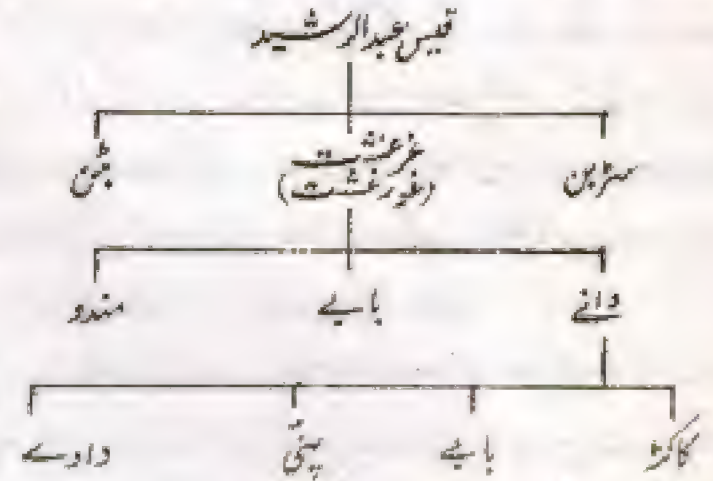 قیس عبدالرشید
سڑبن غرغشت بٹن
(غورغشت)
دانے بابے مندو
کاکڑ بابے پنّی داوے